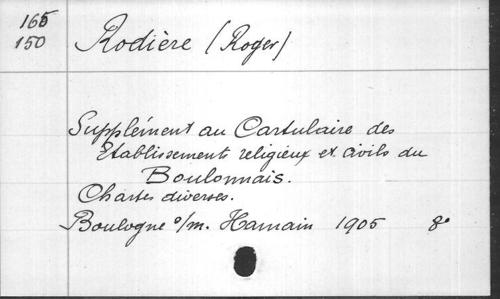 165
150
Rodière (Roger)
Supplément au Cartulaire des
Etablissements religieux et civils du
Boulonnais.
Chartes diverses.
Boulogne s/m. Hamain 1905 8°